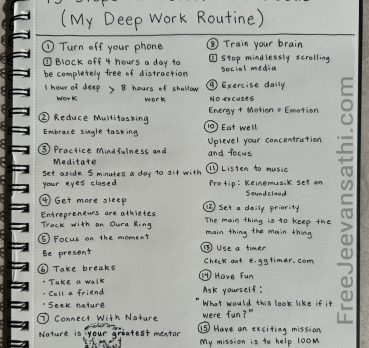 (My Deep Work Routine)
① Turn off your phone
① Block off 4 hours a day to
be completely free of distraction
1 hour of deep work > 8 hours of shallow work
② Reduce Multitasking
Embrace single tasking
③ Practice Mindfulness and
Meditate
Set aside 5 minutes a day to sit with
your eyes closed
④ Get more sleep
Entrepreneurs are athletes
Track with an Oura Ring
⑤ Focus on the moment
Be present
⑥ Take breaks
• Take a walk
• Call a friend
• Seek nature
⑦ Connect With Nature
Nature is your greatest mentor
⑧ Train your brain
① Stop mindlessly scrolling
social media
⑨ Exercise daily
No excuses
Energy + Motion = Emotion
⑩ Eat well
Uplevel your concentration
and focus
⑪ Listen to music
Pro tip: Keinemusik set on
Soundcloud
⑫ Set a daily priority
The main thing is to keep the
main thing the main thing
⑬ Use a timer
Check out e.ggtimer.com
⑭ Have Fun
Ask yourself:
"What would this look like if it
were fun?"
⑮ Have an exciting mission
My mission is to help 100M
FreeJeevansathi.com